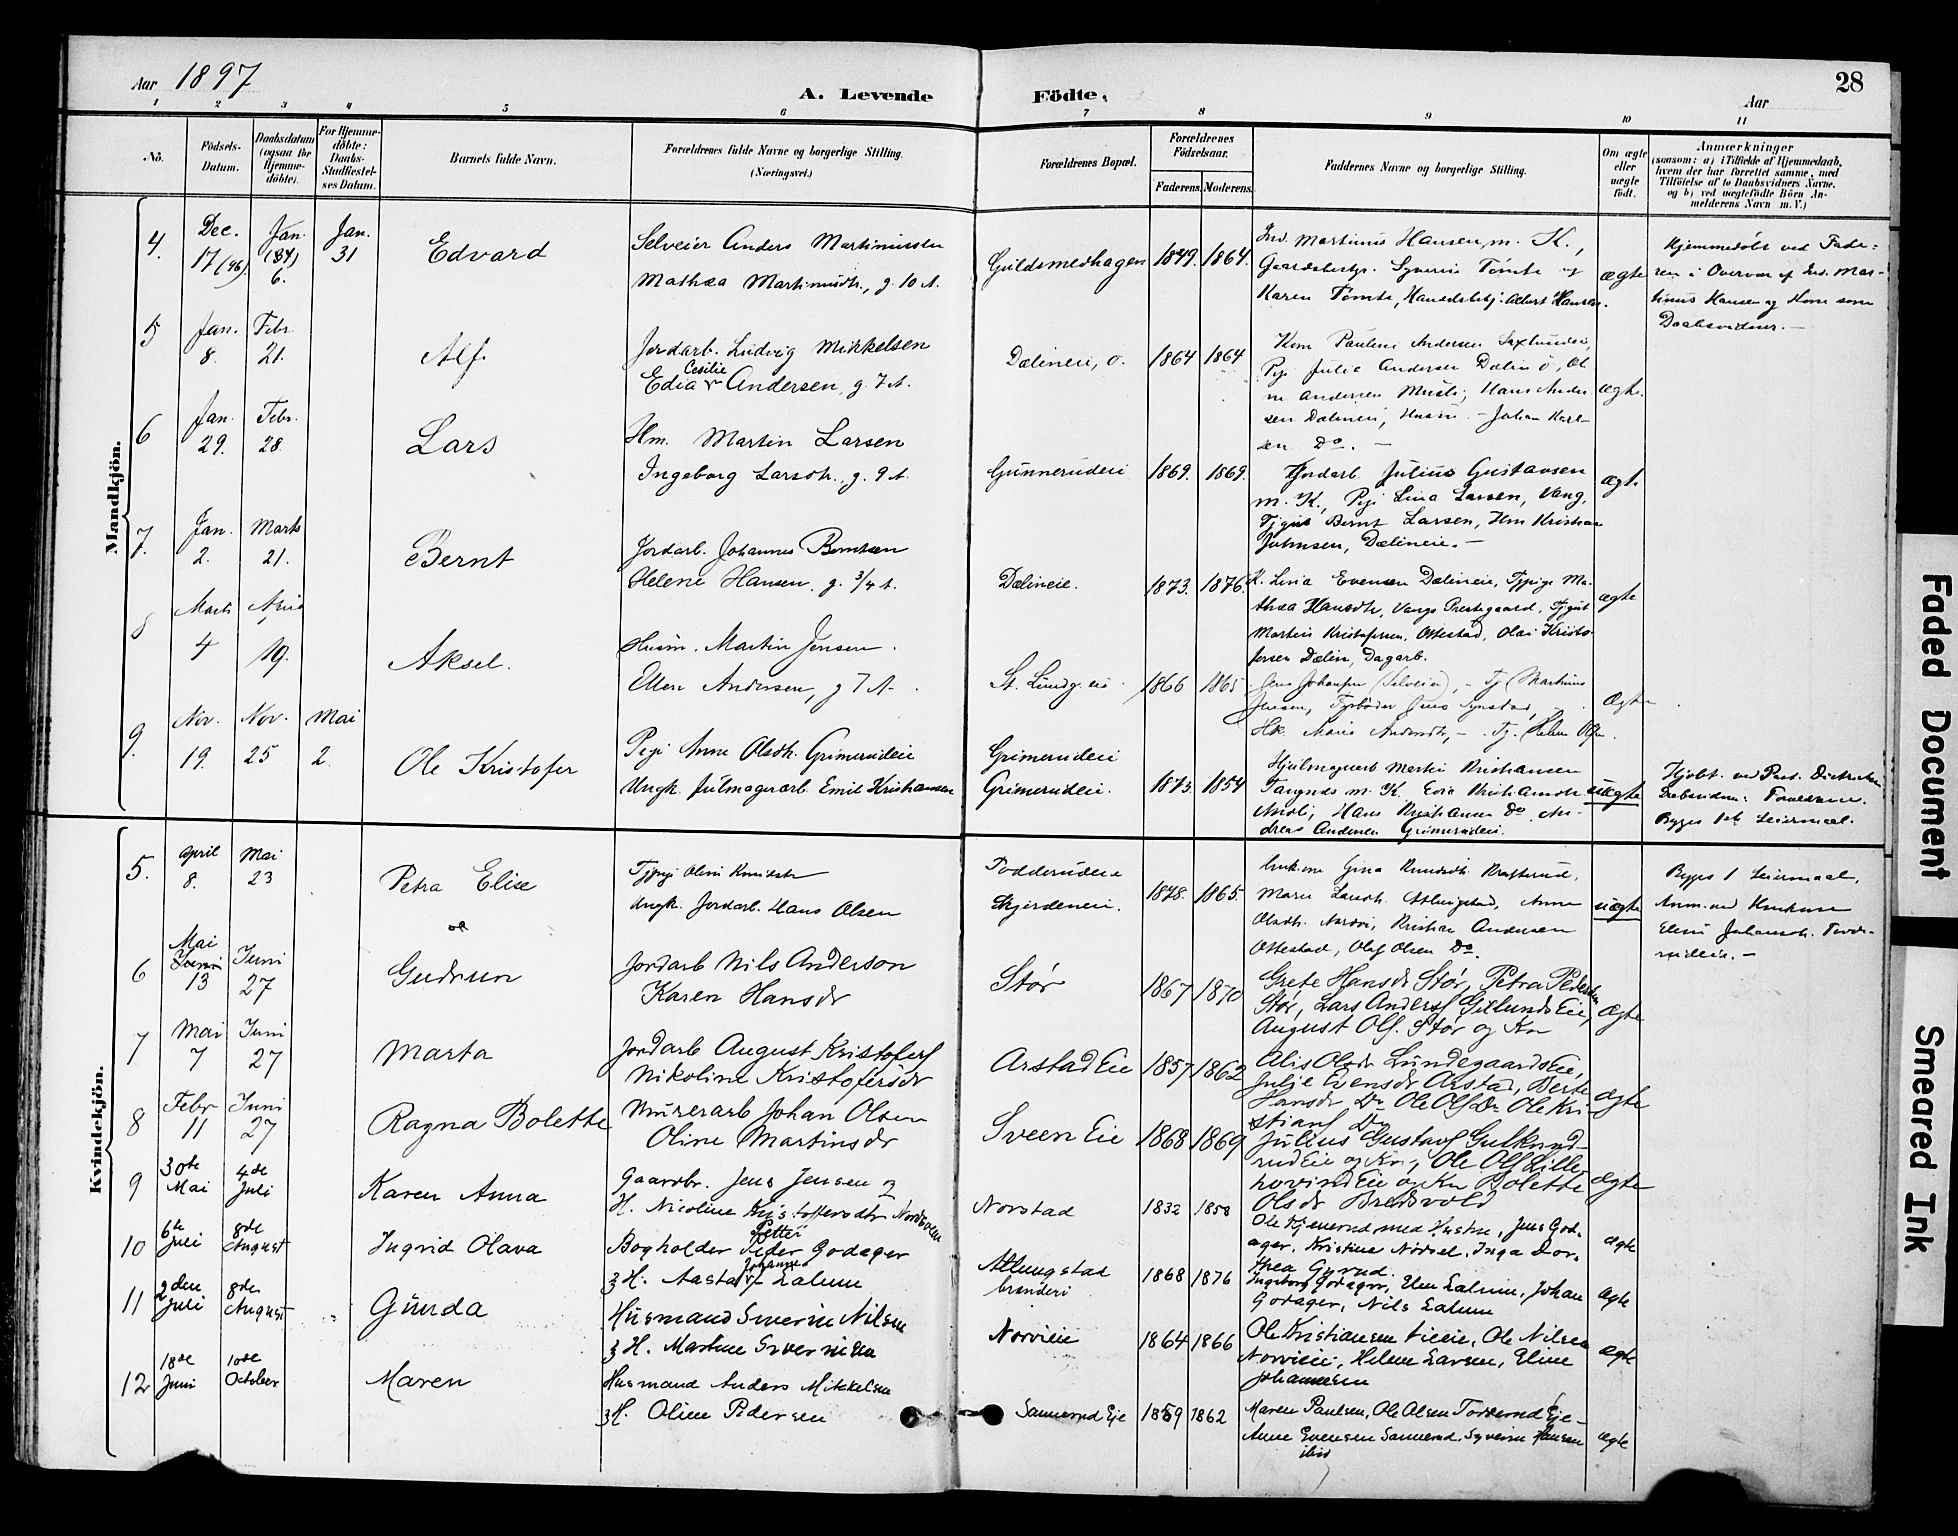 Aar 1897
A. Levende Födte.
Aar
28
1 2 3 4 5 6 7 8 9 10 11
No.
Födsels-Datum.
Daabsdatum (ogsaa for Hjemme-döbte).
For Hjemme-döbte: Daabs-Stadfæstel-ses Datum.
Barnets fulde Navn.
Forældrenes fulde Navne og borgerlige Stilling.
(Næringsvei.)
Forældrenes Bopæl.
Forældrenes Födselsaar.
Faderens. Moderens.
Faddernes Navne og borgerlige Stilling.
Om ægte eller uægte födt.
Anmærkninger
(saasom: a) i Tilfælde af Hjemmedaab,
hvem der har forrettet samme, med
Tilföielse af to Daabsvidners Navne,
og b) ved uægtefödte Börn An-
melderens Navn m. V.)
Mandkjön.
4. Dec. 17 (96). Jan. 6. Jan. 31
Edvard
Selveier Anders Martinussen
Mathea Martinusdtr., g. 10 A.
Guldsmedhagen 1849. 1864.
Ind. Martinus Hansen m. K.,
Gaardbestyr. Syverin Tømte og
Karen Tømte, Handelsbetj. Albert Hansen.
ægte
Hjemmedøbt ved Fade-
ren i Overvær af Ind. Mar-
tinus Hansen og Kone som
Daabsvidner. -
5 Jan. 8. Febr. 21.
Alf.
Jordarb. Ludvig Mikkelsen
Edia Cecilie Andersen, g. 7 A.
Dælineie, ö. 1864 1864
Kone Pauline Andersen Saxlundeie,
Pige Julie Andersen Dælin ö, Ol
Andersen Musli, Hans Ander
sen Dælineie, Husm. - Johan Karl-
sen Do. -
ægte.
6 Jan. 29. Febr. 28.
Lars
Hm. Martin Larsen
Ingeborg Larsdtr., g. 9 A.
Gunnerudeie 1869. 1869.
Jordarb. Julius Gustavsen
m. K., Pige Lina Larsen, Vang,
Tjgut Bernt Larsen, Hm Kristian
Johnsen, Dælineie. -
ægte
7. Jan. 2. Marts 21.
Bernt
Jordarb. Johannes Berntsen
Helene Hansen, g. 3/4 A.
Dælineie. 1873. 1876.
K. Lina Evensen Dælineie, Tjpige Ma-
thea Hansdtr, Vangs Prestegaard, Tjgut
Martin Kristofersen, Ottestad, Olai Kristo-
fersen Dælin, Dagarb.
ægte
8 Marts 4 April 19.
Aksel.
Husm. Martin Jensen.
Ellen Andersen, g 7 A.
St. Lundg. eie 1866 1865
Jens Johansen (Selveier), - Tj. Martinus
Jensen,
Hk. Marie Andersdtr, - Tj. Helene Olsen.
Ægte
9. Nov. 19. Nov. 25 Mai 2.
Ole Kristofer
Pige Anne Olsdtr. Grimerudeie
Ungk. Julmagerarb. Emil Kristiansen
Grimerudeie
Grimerudeie. 1873. 1854
Hjulmagerarb Martin Kristiansen
Tangnes m. K. Evia Kristiansdtr
Musli, Hans Kristiansen Do. An-
dreas Andersen Grimerudeie.
uægte
Byges 1ste Leiermaal.
Kvindekjön.
5. April 8. Mai 23
Petra Elise
Tjpige Oline Knudsdtr
Ungk. Jordarb. Hans Olsen
Todderudeie
Skjerdeneie. 1878. 1865.
Gina Knudsdtr. Krafterud,
Maren Larsdtr. Atlungstad, Anne
Olsdtr. Kristian Andersen
Ottestad, Olaf Olsen Do.
uægte
Byges 1 Leiermaal,
Anm. ved
Eline Johansdtr. Todde-
rudeie. -
6 Mai 13 Juni 27
Gudrun
Jordarb Nils Anderson
Karen Hansdr
Stør 1867 1870
Grete Hansdr Stør, Petra Pedersen
Stør, Lars Anders Gillunds Eie,
August Ols. Stør og Kn
Ægte
7 Mai 7 Juni 27
Marta
Jordarb August Kristofers
Nikoline Kristofersdr
Arstad Eie 1857 1862
Alis Olsdr Lundegaards Eie,
Julie Evensdr Arstad, Berte
Hansdr Do Ole Ols Do Ole Kri-
stians Do
Ægte
8 Febr 11 Juni 27
Ragna Bolette
Murerarb Johan Olsen
Oline Martinsdr
Sveen Eie 1868 1869
Julius Gustavs Gulkrud-
rud Eie og Kn, Ole Ols Lille-
hovind Eie og Kn Bolette
Olsdr Bredvold
Ægte
9 30te Mai 4de Juli
Karen Anna
Gaardbr. Jens Jensen og
H. Nicoline Kristoffersdtr Nordsveen
Norstad 1832 1858
Ole Kjenerud med Hustru, Jens God-
ager, Kristine Nordsel, Inga Dor-
thea Gurud.
ægte
10 6te Juli 8de August
Ingrid Olava
Bogholder Peder Petter Godager
& H. Aasta Johanne Lalum
Atlungstad brænderi 1868 1876
Ingeborg Godager, Elen Lalum, Johan
Godager, Nils Lalum
ægte
11 2den Juli 8de August
Gunda
Husmand Sverin Nilsen
& H. Martine Syverinsen
Norvieie 1864 1866
Ole Kristiansen Vieie, Ole Nilsen
Norvieie, Helene Larsen, Eline
Johannesen
ægte
12 18de Juni 10de October
Maren
Husmand Anders Mikkelsen
& H. Oline Pedersen
Sannerud Eje 1859 1862
Maren Paulsen, Ole Olsen Todderud Eje -
Anne Evensen Sannerud, Syverin Hansen
ibid
ægte
Faded Document
Smeared Ink